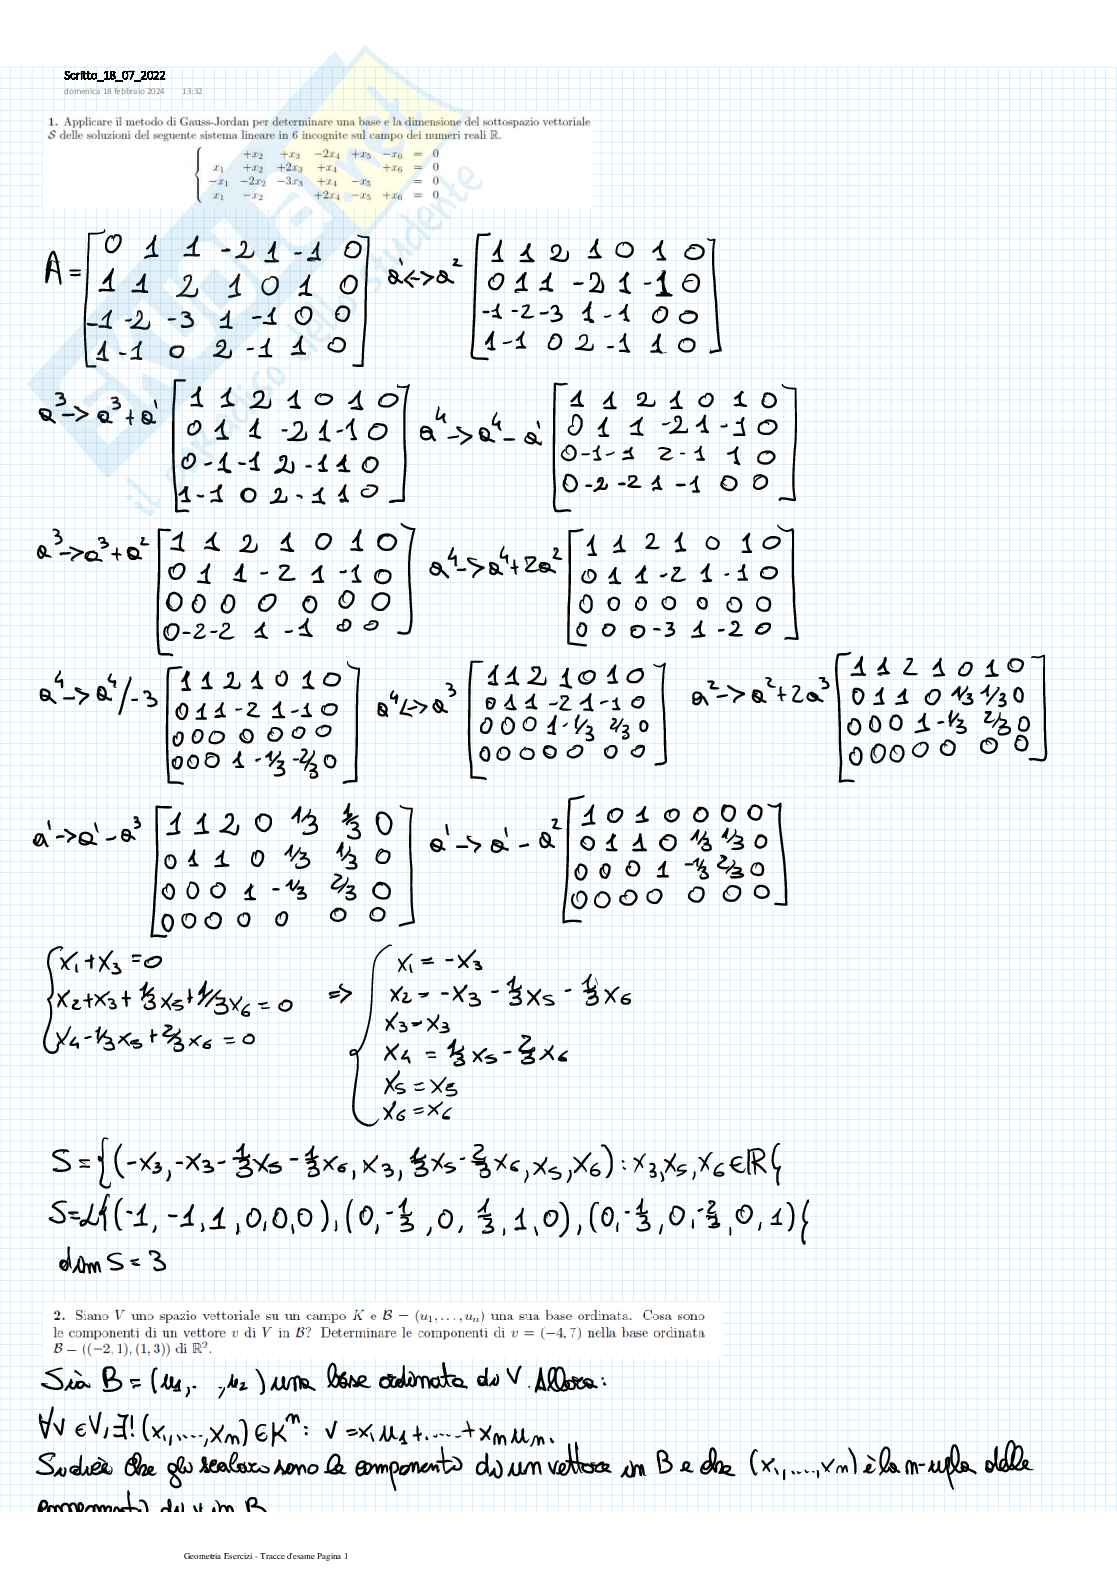 Scritto_18_07_2022
domenica 18 febbraio 2024 13:32
1. Applicare il metodo di Gauss-Jordan per determinare una base e la dimensione del sottospazio vettoriale
S delle soluzioni del seguente sistema lineare in 6 incognite sul campo dei numeri reali ℝ.
+x₂ +x₃ −2x₄ +x₅ −x₆ = 0
x₁ +x₂ +2x₃ +x₄ +x₆ = 0
−x₁ −2x₂ −3x₃ +x₄ −x₅ = 0
x₁ −x₂ +2x₄ −x₅ +x₆ = 0
A = [0 1 1 -2 1 -1 0 a¹<->a² [1 1 2 1 0 1 0
1 1 2 1 0 1 0 0 1 1 -2 1 -1 0
-1 -2 -3 1 -1 0 0 -1 -2 -3 1 -1 0 0
1 -1 0 2 -1 1 0] 1 -1 0 2 -1 1 0]
a³->a³+a¹ [1 1 2 1 0 1 0 a⁴->a⁴-a¹ [1 1 2 1 0 1 0
0 1 1 -2 1 -1 0 0 1 1 -2 1 -1 0
0 -1 -1 2 -1 1 0 0 -1 -1 2 -1 1 0
1 -1 0 2 -1 1 0] 0 -2 -2 1 -1 0 0]
a³->a³+a² [1 1 2 1 0 1 0 a⁴->a⁴+2a² [1 1 2 1 0 1 0
0 1 1 -2 1 -1 0 0 1 1 -2 1 -1 0
0 0 0 0 0 0 0 0 0 0 0 0 0 0
0 -2 -2 1 -1 0 0] 0 0 0 -3 1 -2 0]
a⁴->a⁴/-3 [1 1 2 1 0 1 0 a⁴<->a³ [1 1 2 1 0 1 0 a²->a²+2a³ [1 1 2 1 0 1 0
0 1 1 -2 1 -1 0 0 1 1 -2 1 -1 0 0 1 1 0 1/3 1/3 0
0 0 0 0 0 0 0 0 0 0 1 -1/3 2/3 0 0 0 0 1 -1/3 2/3 0
0 0 0 1 -1/3 -2/3 0] 0 0 0 0 0 0 0] 0 0 0 0 0 0 0]
a¹->a¹-a³ [1 1 2 0 1/3 1/3 0 a¹->a¹-a² [1 0 1 0 0 0 0
0 1 1 0 1/3 1/3 0 0 1 1 0 1/3 1/3 0
0 0 0 1 -1/3 2/3 0 0 0 0 1 -1/3 2/3 0
0 0 0 0 0 0 0] 0 0 0 0 0 0 0]
x₁+x₃=0 x₁ = -x₃
x₂+x₃+1/3x₅+1/3x₆=0 => x₂ = -x₃ - 1/3x₅ - 1/3x₆
x₃=x₃
x₄-1/3x₅+2/3x₆=0 x₄ = 1/3x₅-2/3x₆
x₅=x₅
x₆=x₆
S={(-x₃,-x₃-1/3x₅-1/3x₆,x₃,1/3x₅-2/3x₆,x₅,x₆):x₃,x₅,x₆∈ℝ}
S=L{(-1,-1,1,0,0,0),(0,-1/3,0,1/3,1,0),(0,-1/3,0,-2/3,0,1)}
dim S=3
2. Siano V uno spazio vettoriale su un campo K e B = (u₁,...,uₙ) una sua base ordinata. Cosa sono
le componenti di un vettore v di V in B? Determinare le componenti di v = (−4, 7) nella base ordinata
B = ((−2, 1), (1, 3)) di ℝ².
Sia B=(u₁,. ,u₂) una base ordinata di V. Allora:
∀v∈V,∃!(x₁,...,xₙ)∈Kⁿ: v=x₁u₁+....+xₙuₙ.
Si dice che gli scalari sono le componenti di un vettore in B e che (x₁,...,xₙ) è la n-upla delle
componenti di v in B
Geometria Esercizi - Tracce d'esame Pagina 1